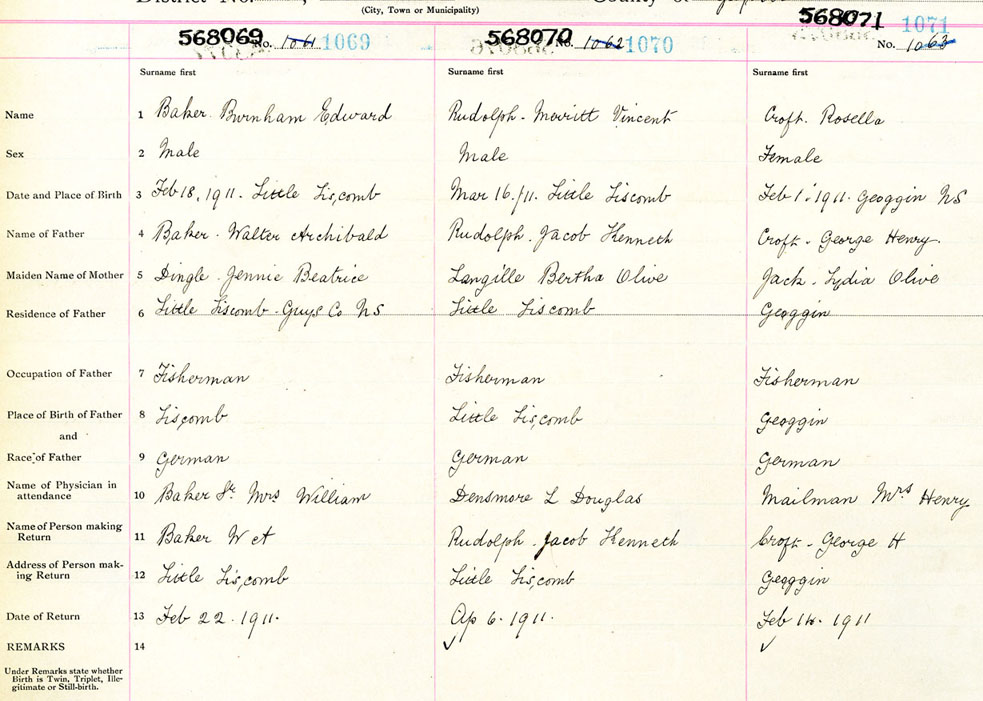 District No.
County of
(City, Town or Municipality)
568069 No. 1061 1069
568070 No. 1062 1070
568071 1071
No. 1063
Surname first Surname first Surname first
Name 1 Baker. Burnham Edward Rudolph - Merritt Vincent Croft. Rosella
Sex 2 Male Male Female
Date and Place of Birth 3 Feb 18, 1911. Little Liscomb Mar 16/11. Little Liscomb Feb 1. 1911. Geoggin NS
Name of Father 4 Baker. Walter Archibald Rudolph. Jacob Kenneth Croft - George Henry.
Maiden Name of Mother 5 Dingle - Jennie Beatrice Langille Bertha Olive Jack. Lydia Olive
Residence of Father 6 Little Liscomb - Guys Co NS Little Liscomb Geoggin
Occupation of Father 7 Fisherman Fisherman Fisherman
Place of Birth of Father 8 Liscomb Little Liscomb Geoggin
and
Race of Father 9 German German German
Name of Physician in
attendance 10 Baker Sr. Mrs William Densmore L Douglas Mailman Mrs Henry
Name of Person making
Return 11 Baker W A Rudolph. Jacob Kenneth Croft - George H
Address of Person mak-
ing Return 12 Little Liscomb Little Liscomb Geoggin
Date of Return 13 Feb 22. 1911. Ap 6. 1911. Feb 14. 1911
REMARKS 14 ✓ ✓
Under Remarks state whether
Birth is Twin, Triplet, Ille-
gitimate or Still-birth.